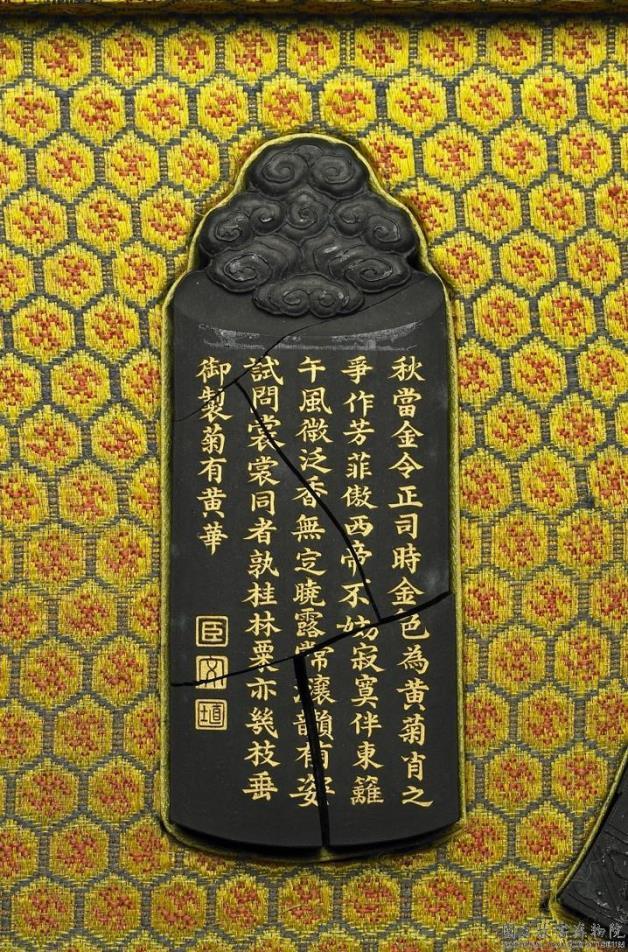 秋當金令正司時金色為黄菊肖之
爭作芳菲傲西帝不妨寂寞伴東籬
午風微泛香無定曉露常瀼韻有姿
試問裳裳同者孰桂林粟亦幾枝垂
御製菊有黄華
臣
文
埴
國立故宮博物院